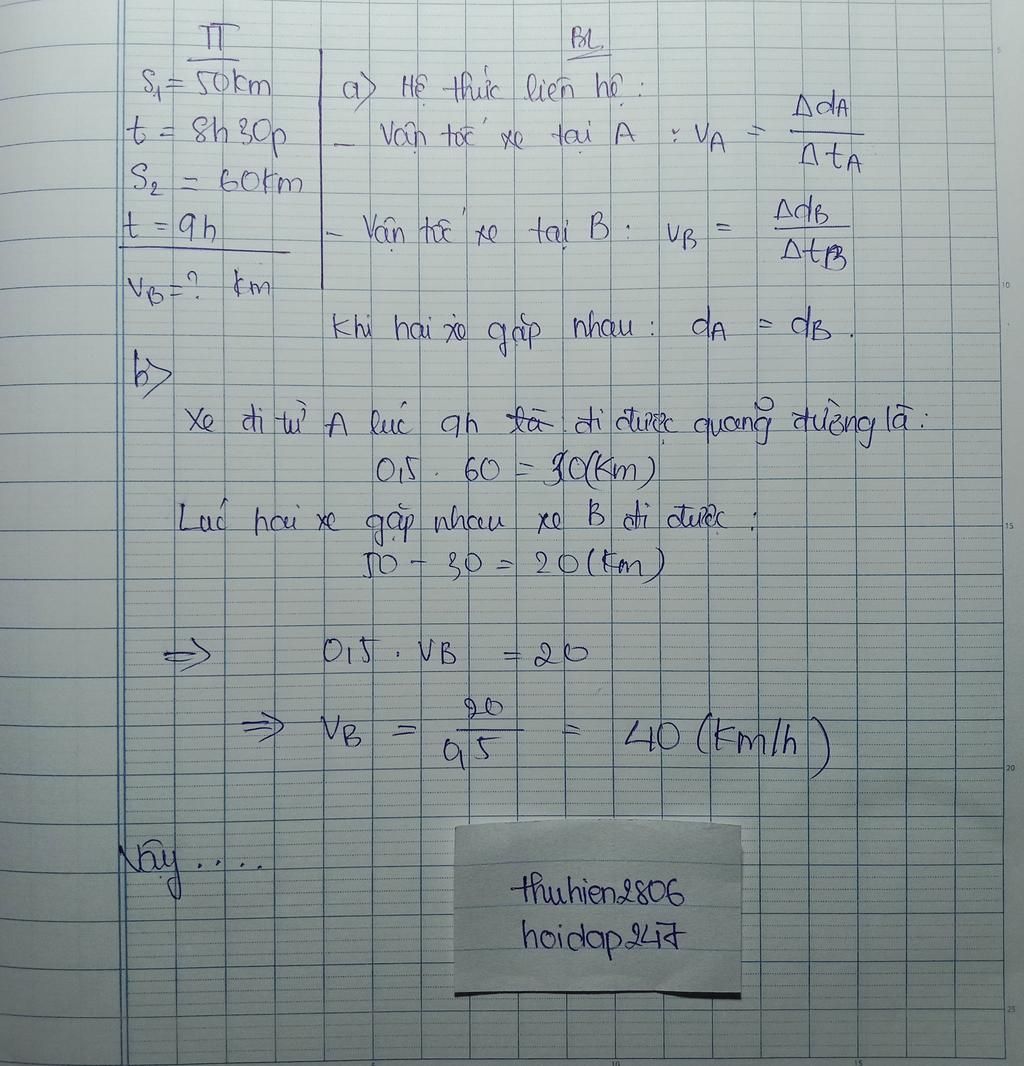 TT
S₁ = 50km
t = 8h 30p
S₂ = 60km
t = 9h
V_B = ? km
BL
a) Hệ thức liên hệ:
- Vận tốc xe tại A : V_A = Δd_A / Δt_A
- Vận tốc xe tại B : V_B = Δd_B / Δt_B
Khi hai xe gặp nhau : d_A = d_B.
b)
Xe đi từ A lúc 9h đi được quang đường là:
0,5 . 60 = 30(Km)
Lúc hai xe gặp nhau xe B đi được:
50 - 30 = 20(Km)
⇒ 0,5 . V_B = 20
⇒ V_B = 20 / 0,5 = 40 (Km/h)
Vậy.....
thuhien2806
hoidap247